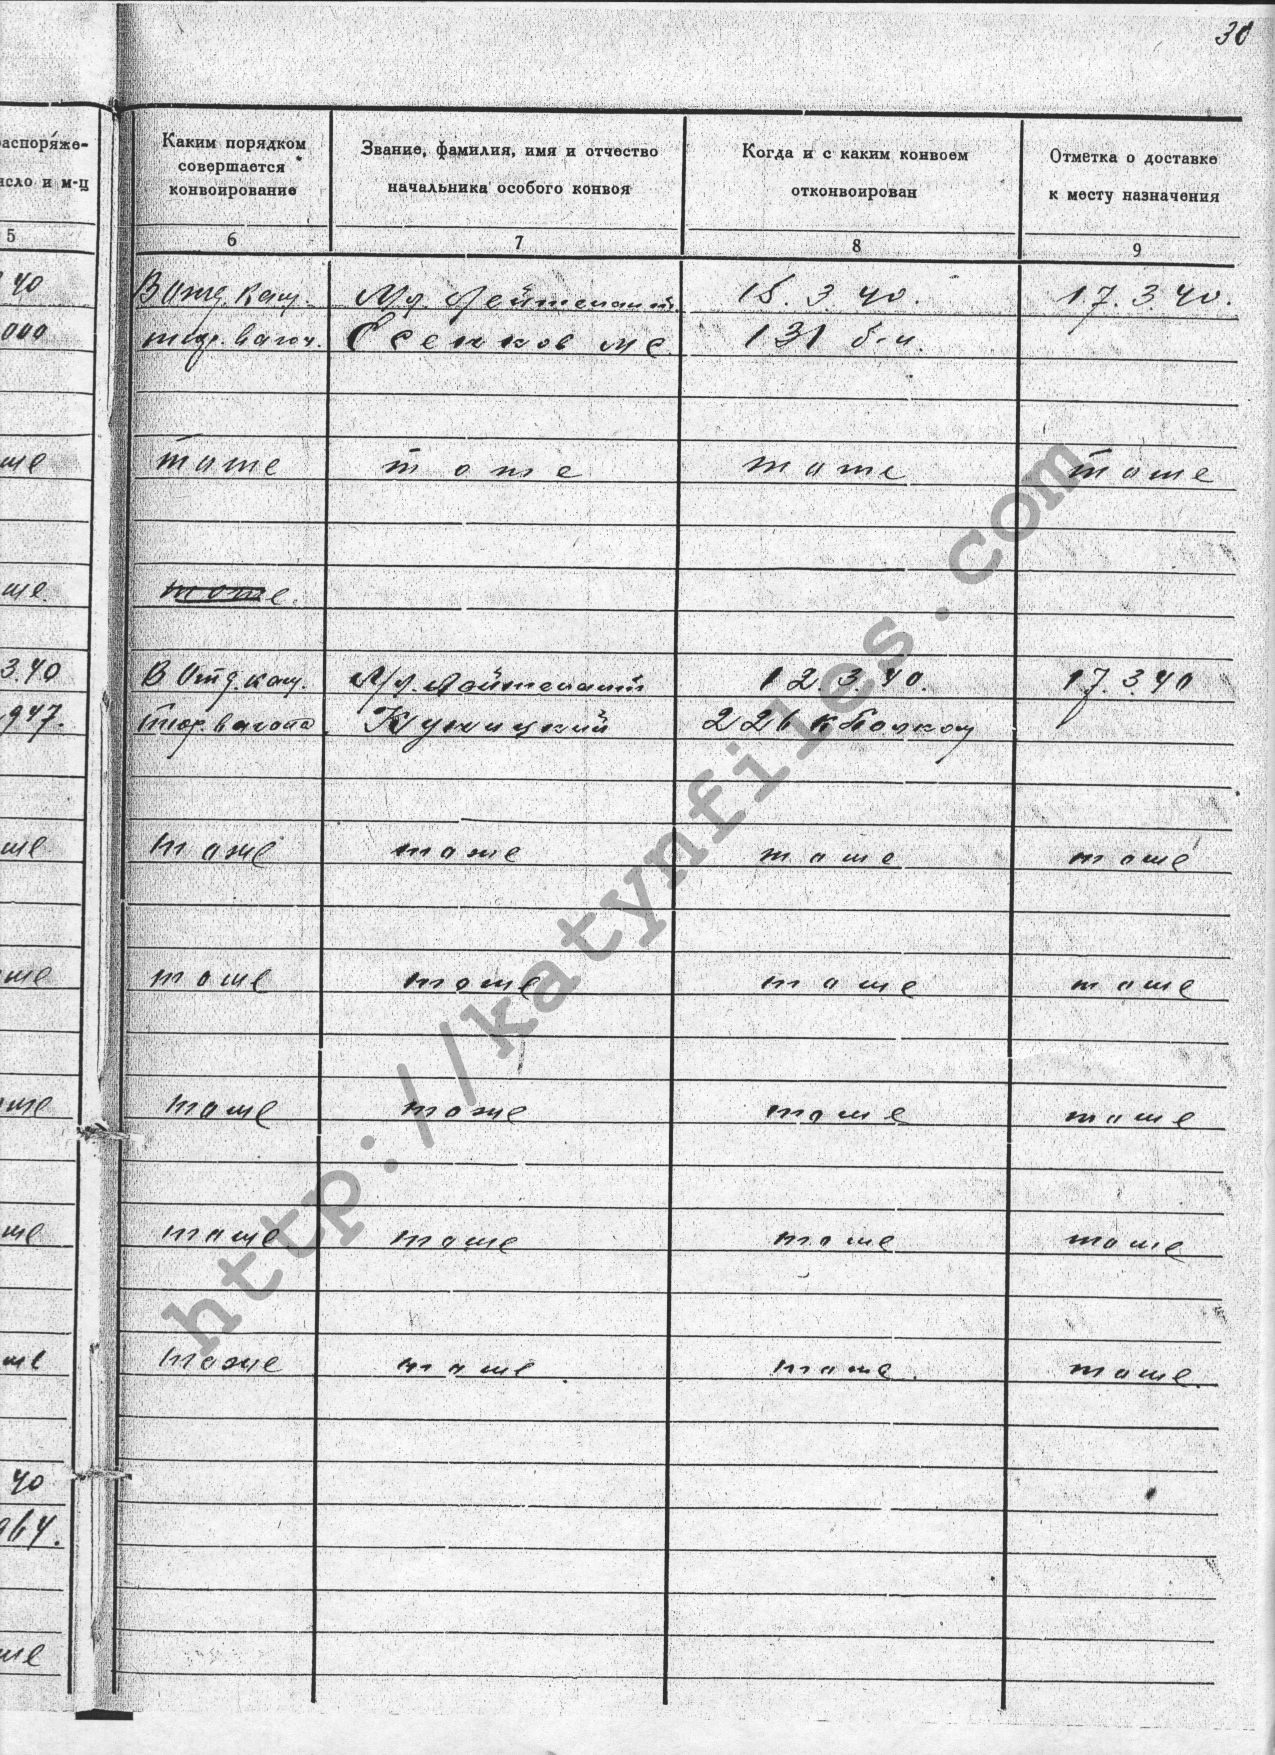 30
распоряже-
исло и м-ц
Каким порядком
совершается
конвоирование
Звание, фамилия, имя и отчество
начальника особого конвоя
Когда и с каким конвоем
отконвоирован
Отметка о доставке
к месту назначения
5 6 7 8 9
40 В отд. кам. Мл. Лейтенант 15. 3. 40. 17. 3. 40.
000 тюр. вагон. 131 б-н.
же тоже тоже тоже тоже
же. тоже.
3.40 В отд. кам. Мл. Лейтенант 12. 3. 40. 17. 3. 40
947. тюр. вагона Куницкий 226 к полком
же тоже тоже тоже тоже
же тоже тоже тоже тоже
же тоже тоже тоже тоже
же тоже тоже тоже тоже
же тоже тоже. тоже. тоже.
40
964.
же
http://katynfiles.com